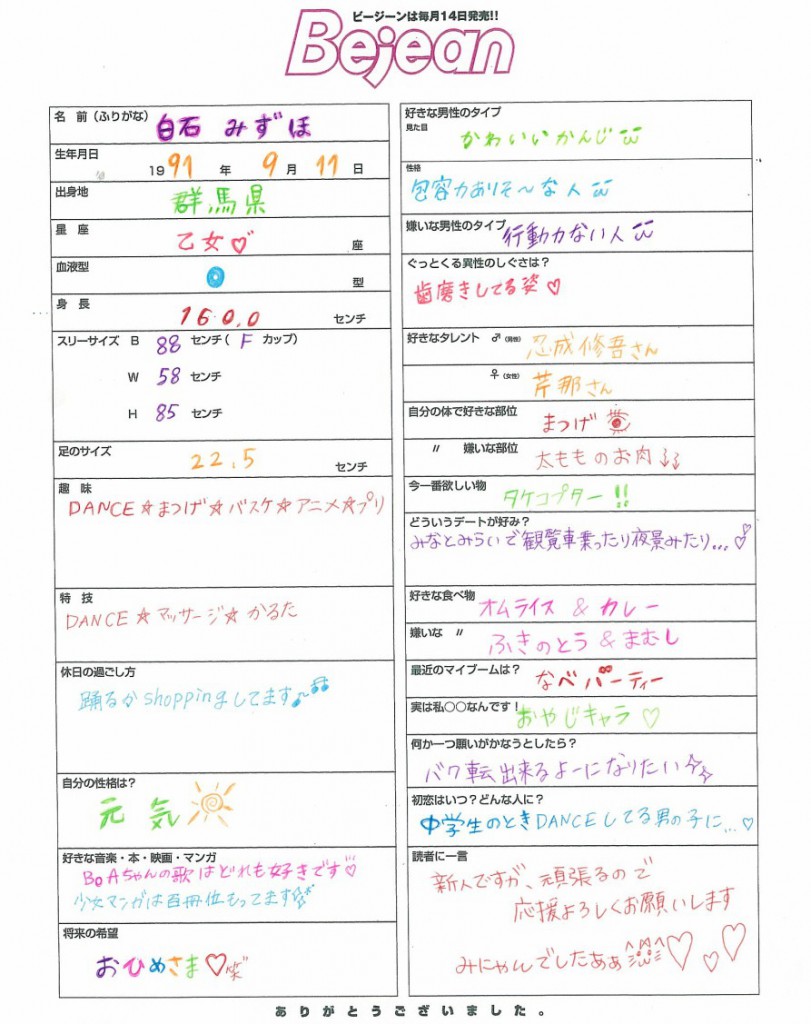 ビージーンは毎月14日発売!!
Bejean
名　前（ふりがな） 白石 みずほ
生年月日 1991 年 9 月 11 日
出身地 群馬県
星　座 乙女♡ 座
血液型 O 型
身　長 160.0 センチ
スリーサイズ B 88 センチ( F カップ)
W 58 センチ
H 85 センチ
足のサイズ 22.5 センチ
趣　味
DANCE☆まつげ☆バスケ☆アニメ☆プリ
特　技
DANCE☆マッサージ☆かるた
休日の過ごし方
踊るかshoppingしてます♪♫
自分の性格は?
元気
好きな音楽・本・映画・マンガ
BoAちゃんの歌はどれも好きです♡
少女マンガは百冊位もってます
将来の希望
おひめさま♡笑
好きな男性のタイプ
見た目 かわいいかんじ
性格
包容力ありそ〜な人
嫌いな男性のタイプ 行動力ない人
ぐっとくる異性のしぐさは?
歯磨きしてる姿♡
好きなタレント ♂（男性） 忍成修吾さん
♀（女性） 芹那さん
自分の体で好きな部位 まつげ
〃　嫌いな部位 太もものお肉↓↓
今一番欲しい物 タケコプター!!
どういうデートが好み?
みなとみらいで観覧車乗ったり夜景みたり...♡
好きな食べ物 オムライス & カレー
嫌いな 〃 ふきのとう & まむし
最近のマイブームは? なべパーティー
実は私○○なんです! おやじキャラ♡
何か一つ願いがかなうとしたら?
バク転出来るよーになりたい☆
初恋はいつ?どんな人に?
中学生のときDANCEしてる男の子に...♡
読者に一言
新人ですが、頑張るので
応援よろしくお願いします
みにゃんでしたぁぁ♡♡♡
ありがとうございました。